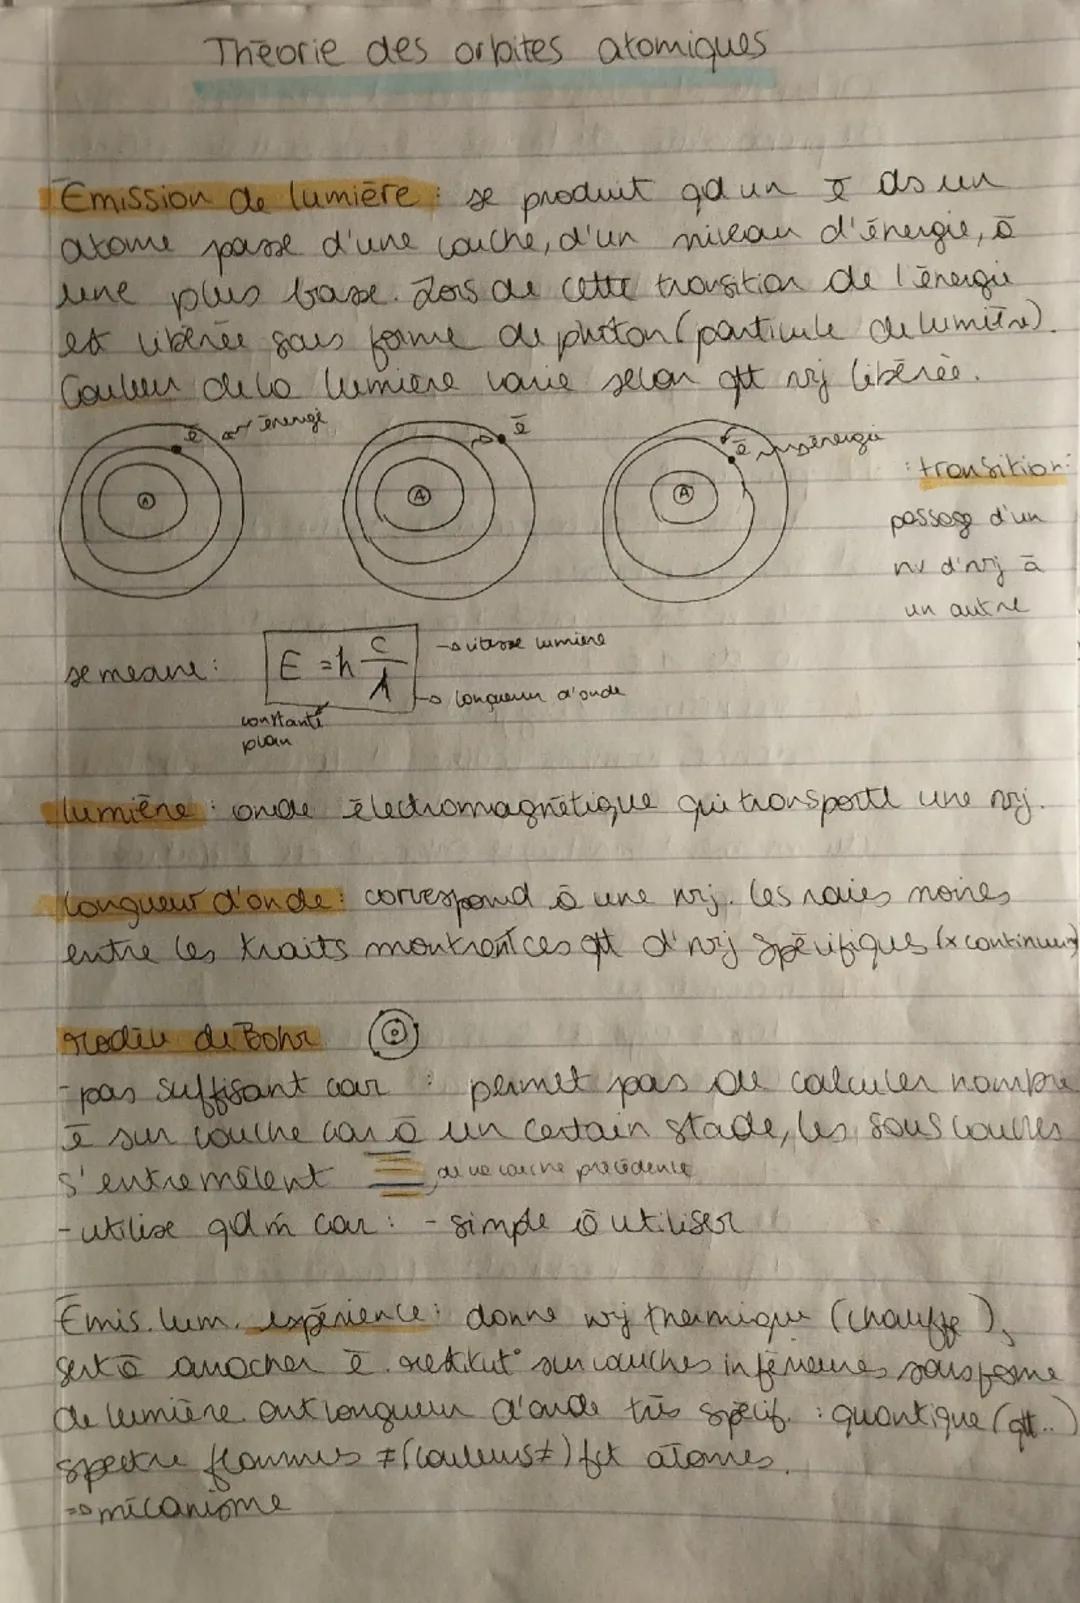 Théorie des orbites atomiques
Émission de lumière : se produit qd un ē ds un
atome passe d'une couche, d'un niveau d'énergie, à
une plus basse. Lors de cette transition de l'énergie
est libérée sous forme de photon (particule de lumière).
Couleur de la lumière varie selon qtt nrj libérée.
ē énergie
ē
ē énergie
: transition:
passage d'un
nv d'nrj à
un autre
A
A
A
se mesure :
E = h c/λ
→ vitesse lumière
→ longueur d'onde
constante
plan
lumière : onde électromagnétique qui transporte une nrj.
longueur d'onde : correspond à une nrj. les raies noires
entre les traits montrent ces qtt d'nrj spécifiques (x continues)
Modèle de Bohr
- pas suffisant car : permet pas de calculer nombre
ē sur couche car à un certain stade, les sous couches
s'entremêlent de la couche précédente
- utilise qd m̂ car : - simple à utiliser
Émis. lum. expérience : donne nrj thermique (chauffe),
sert à arracher ē. restitut° sur couches inférieures sous forme
de lumière. ont longueur d'onde très spécif. : quantique (qtt..)
spectre flammes ≠ (couleurs ≠) fct atomes.
=> mécanisme